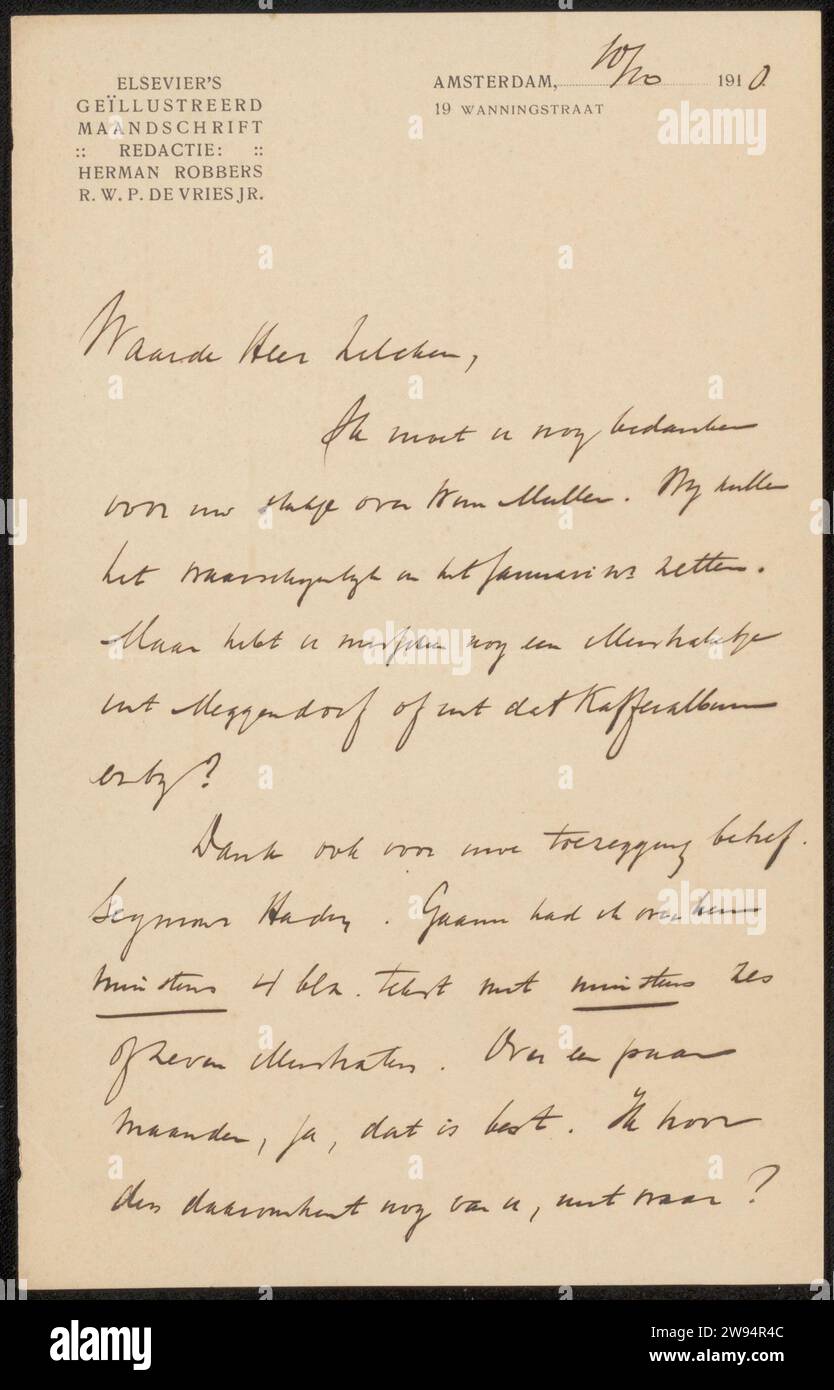 ELSEVIER'S
GEÏLLUSTREERD
MAANDSCHRIFT
:: REDACTIE: ::
HERMAN ROBBERS
R. W. P. DE VRIES JR.
AMSTERDAM, 10/10 1910
19 WANNINGSTRAAT
Waarde Heer Zilcken,
Ik moet u nog bedanken
voor uw stukje over Muller. Wy zullen
het waarschynlyk in het Januari nr zetten.
Maar hebt u misschien nog een illustratietje
uit Meggendorf of uit dat Kafferalbum
erby?
Dank ook voor uwe toezegging betref.
Seymour Haden. Gaarne had ik over hem
minstens 4 blz. tekst met minstens zes
of zeven illustraties. Over een paar
maanden, ja, dat is best. Ik hoor
dus daaromtrent nog van u, niet waar?
alamy
Image ID: 2W94R4C
www.alamy.com